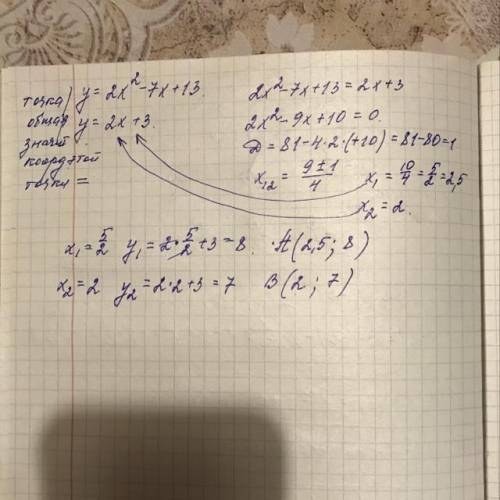 точка y = 2x² - 7x + 13
общая y = 2x + 3
значит
коорд этой
точки =
2x² - 7x + 13 = 2x + 3
2x² - 9x + 10 = 0
D = 81 - 4 · 2 · (+10) = 81 - 80 = 1
x₁₂ = (9 ± 1)/4 x₁ = 10/4 = 5/2 = 2,5
x₂ = 2
x₁ = 5/2 y₁ = 2 · 5/2 + 3 = 8 · A (2,5; 8)
x₂ = 2 y₂ = 2 · 2 + 3 = 7 B (2; 7)